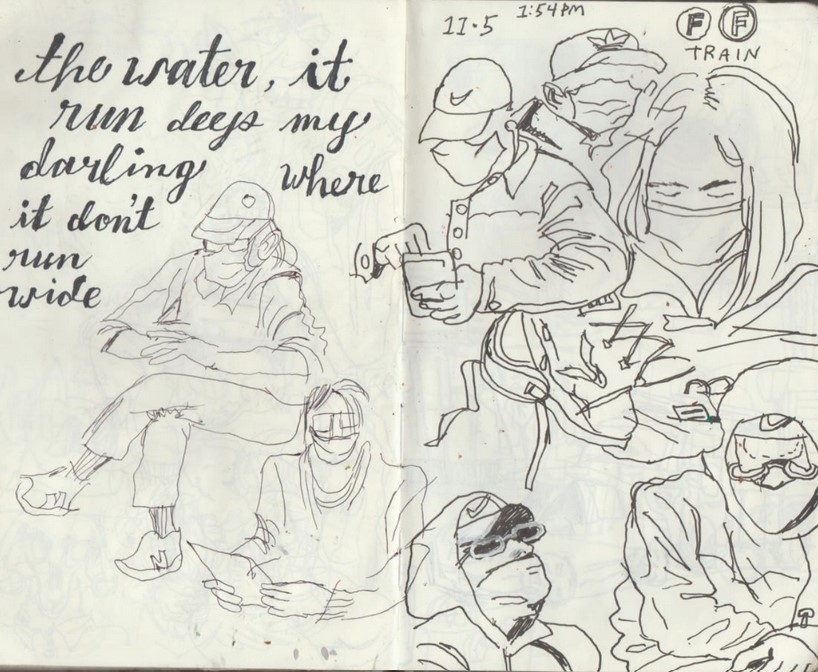 the water, it
run deeps my
darling where
it don't
run
wide
N
11·5 1:54PM
F F
TRAIN